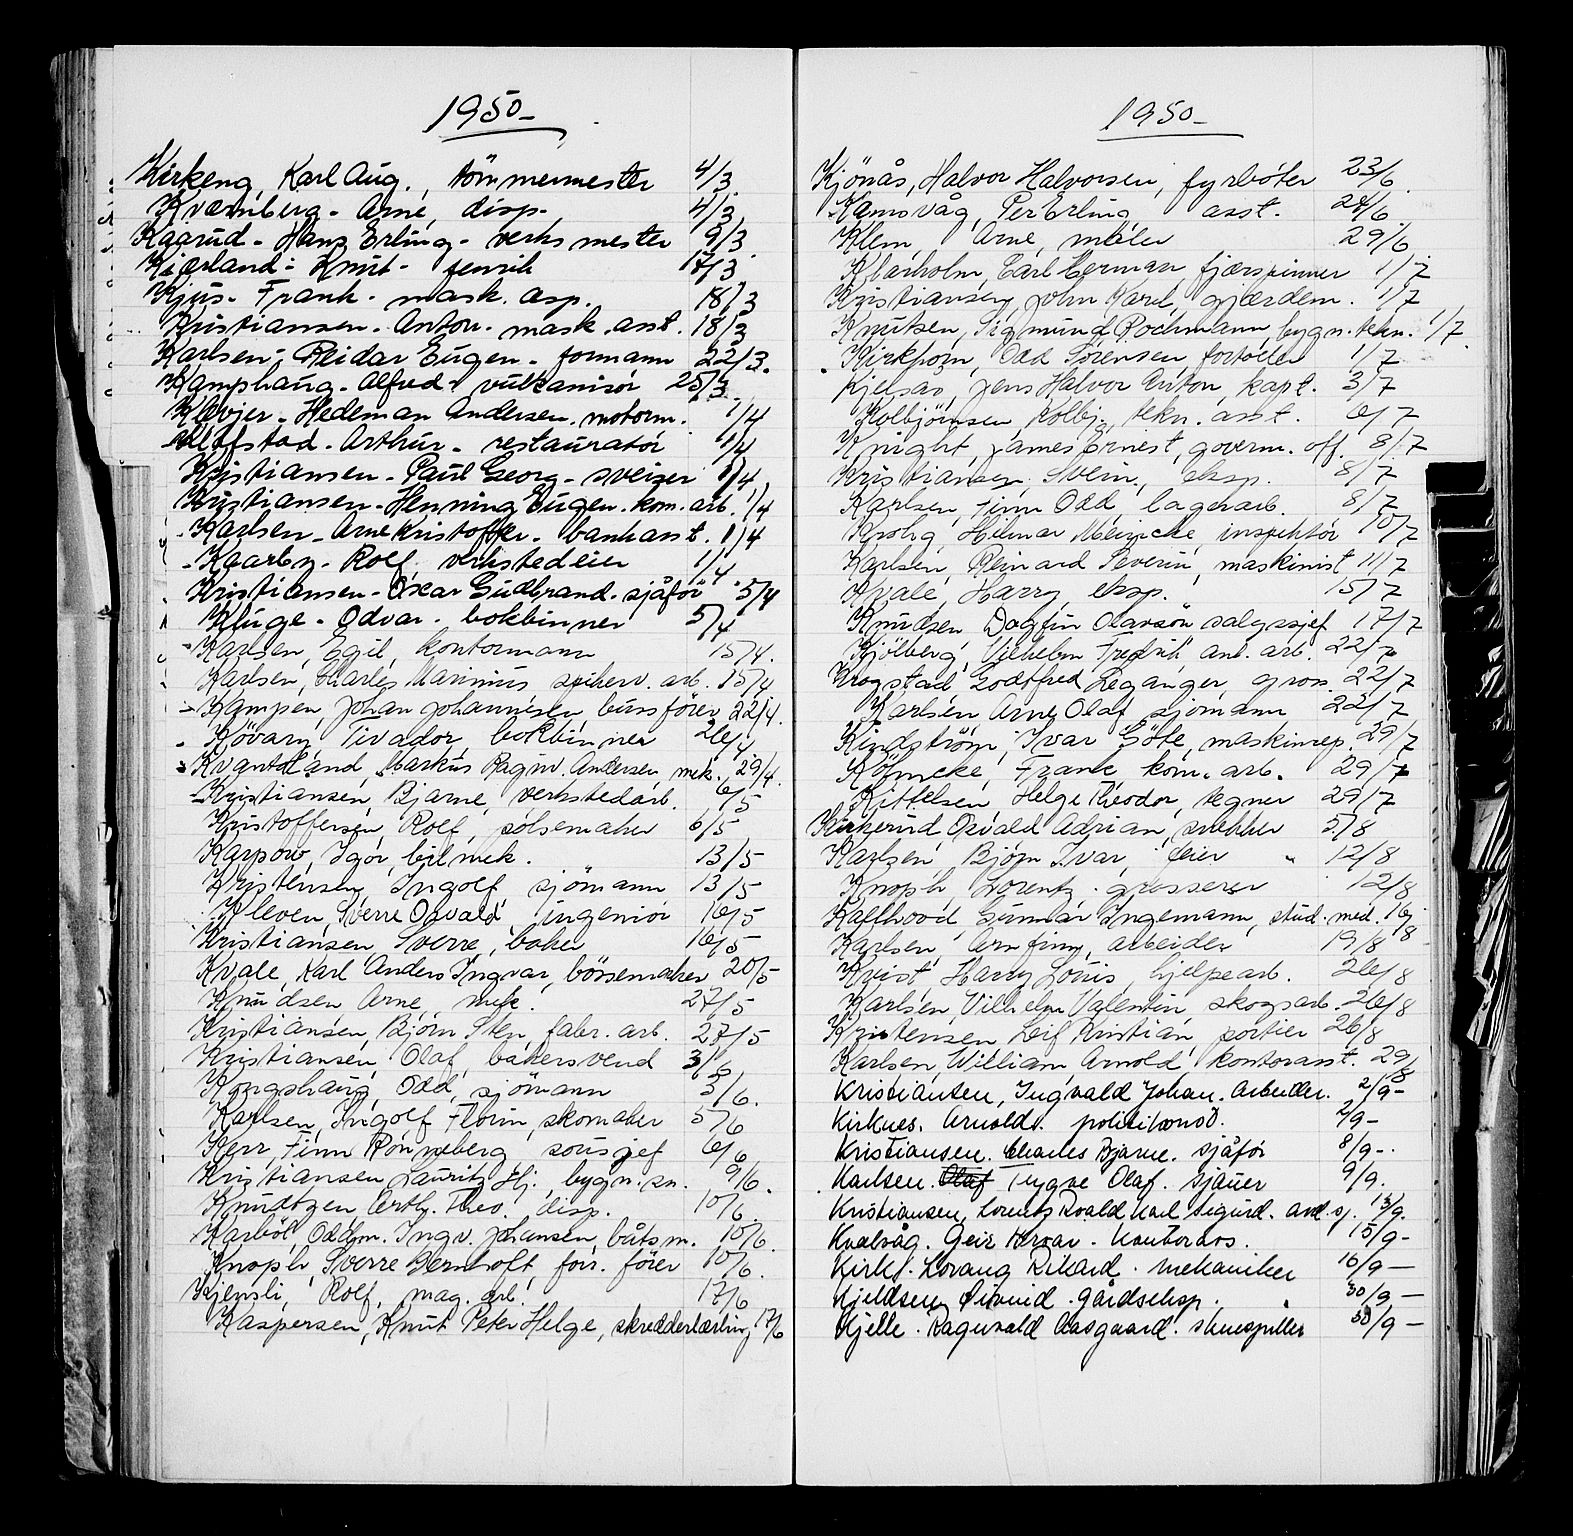 1950-
Kirkeng, Karl Aug., tömmermester 4/3
Kvamberg - Arne, disp. 4/3
Kaarud - Hans Erling - verksmester 9/3
Kjærland - Knut - fenrik 17/3
Kjus - Frank - mask. asp. 18/3
Kristiansen - Anton - mask. asst. 18/3
Karlsen - Reidar Eugen - formann 22/3.
Kamphaug - Alfred - vulkanisör 25/3
Klavjer - Hedeman Andersen. motorm. 1/4
Kloffstad - Arthur - restauratör 1/4
Kristiansen - Paul Georg - sveiser 1/4
Kristiansen - Henning Eugen - kom. arb. 1/4
Karlsen - Arne Kristoffer - bankasst. 1/4
Kaarby - Rolf, verkstedeier 1/4
Kristiansen - Oscar Gudbrand - sjåför 5/4
Kluge - Odvar - bokbinner 5/4
Karlsen, Egil, kontormann 15/4.
Karlsen, Charles Marinius, sikherv. arb. 15/4
Kampen, Johan Johannesen, bussförer 22/4.
Kövary, Tivador, bokbinner 26/4
Kvantoland, Markus Ragnv. Andersen mek. 29/4.
Kristiansen, Bjarne, verkstedarb. 6/5
Kristoffersen, Rolf, pölsemaker 6/5
Karpow, Igor, bilmek. 13/5
Kristensen, Ingolf, sjömann 13/5
Kleven, Sverre Osvald ingeniör 16/5
Kristiansen, Sverre, baker 16/5
Kvale, Karl Anders Ingvar, börsemaker 20/5
Knudsen Arne, mek. 27/5
Kristiansen, Björn Sten, fabr. arb. 27/5
Kristiansen, Olaf, bakersvend 3/6
Kongshaug, Odd, sjömann 3/6.
Karlsen, Ingolf Florin, skomaker 5/6
Kerr, Finn Rönneberg sousjef 6/6
Kristiansen Lauritz Hj., bygn. sn. 9/6.
Knudtzen, Arth. Theo. disp. 10/6.
Karböl, Oddm. Ingv. Johansen, båtsm. 10/6.
Knoph, Sverre Bernhoft, forr. förer 10/6.
Kjensli, Rolf, mag. arb. 17/6
Kaspersen, Knut Peter Helge, skredderlærling 17/6
1950-
Kjönås, Halvor Halvorsen, fyrböter 23/6.
Kamsvåg, Per Erling, asst. 24/6
Klem, Arne, maler 29/6
Klarholm, Carl Herman, fjærspinner 1/7
Kristiansen, John Karl, gjærdem. 1/7
Knutsen, Sigmund Rochmann, bygn. tekn. 1/7.
Kirkhorn, Odd Sörensen fortoller 1/7
Kjelsås, Jens Halvor Anton, kapt. 3/7
Kolbjörnsen, Kolbj., tekn. asst. 6/7
Knight, James Ernest, governm. off. 8/7
Kristiansen, Svein, eksp. 8/7
Karlsen, Finn Odd, lagerarb. 8/7
Krohg, Hilmar Meincke, inspektör 10/7
Karlsen, Reinard Severin, maskinist 11/7
Kvale, Harry, eksp. 15/7
Knudsen, Dagfin Olavsön salgssjef 17/7
Kjölberg, Vilhelm Fredrik, anl. arb. 22/7
Krogstad, Godtfred Leganger, gros. 22/7
Karlsen Arne Olaf sjömann 22/7
Kindström, Ivar Göte, maskinrep. 29/7
Kömcke, Frank, kom. arb. 29/7
Kittelsen, Helge Theodor, tegner 29/7
Kirkerud, Osvald Adrian, snekker 5/8
Karlsen, Björn Ivar, feier 12/8
Knoph, Lorentz - grosserer 12/8
Kaflhovd, Gunnar Ingemann, stud. med. 16/8
Karlsen, Arnfinn, arbeider 19/8
Kvist, Harry Louis, hjelpearb. 26/8
Karlsen, Vilhelm Valentin, skogsarb. 26/8
Kristensen, Leif Kristian, portier 26/8
Karlsen, William Arnold, kontorasst. 29/8
Kristiansen, Ingvald Johan. Arbeider. 2/9-
Kirknes. Arnold. politikonst. 2/9-
Kristiansen. Charles Bjarne. sjåför 8/9-.
Karlsen. Olaf Trygve Olaf. sjauer 9/9.
Kristiansen, Lorentz Roald Karl Sigurd. and. sj. 13/9.
Kvalvåg. Geir Hroar. Kontordos. 15/9-
Kirkf. Lorang Rikard. mekaniker 16/9-
Kjeldsen, Öivind. gårdseksp. 30/9-
Kjelle. Ragnvald Aasgaard. skuespiller 30/9-